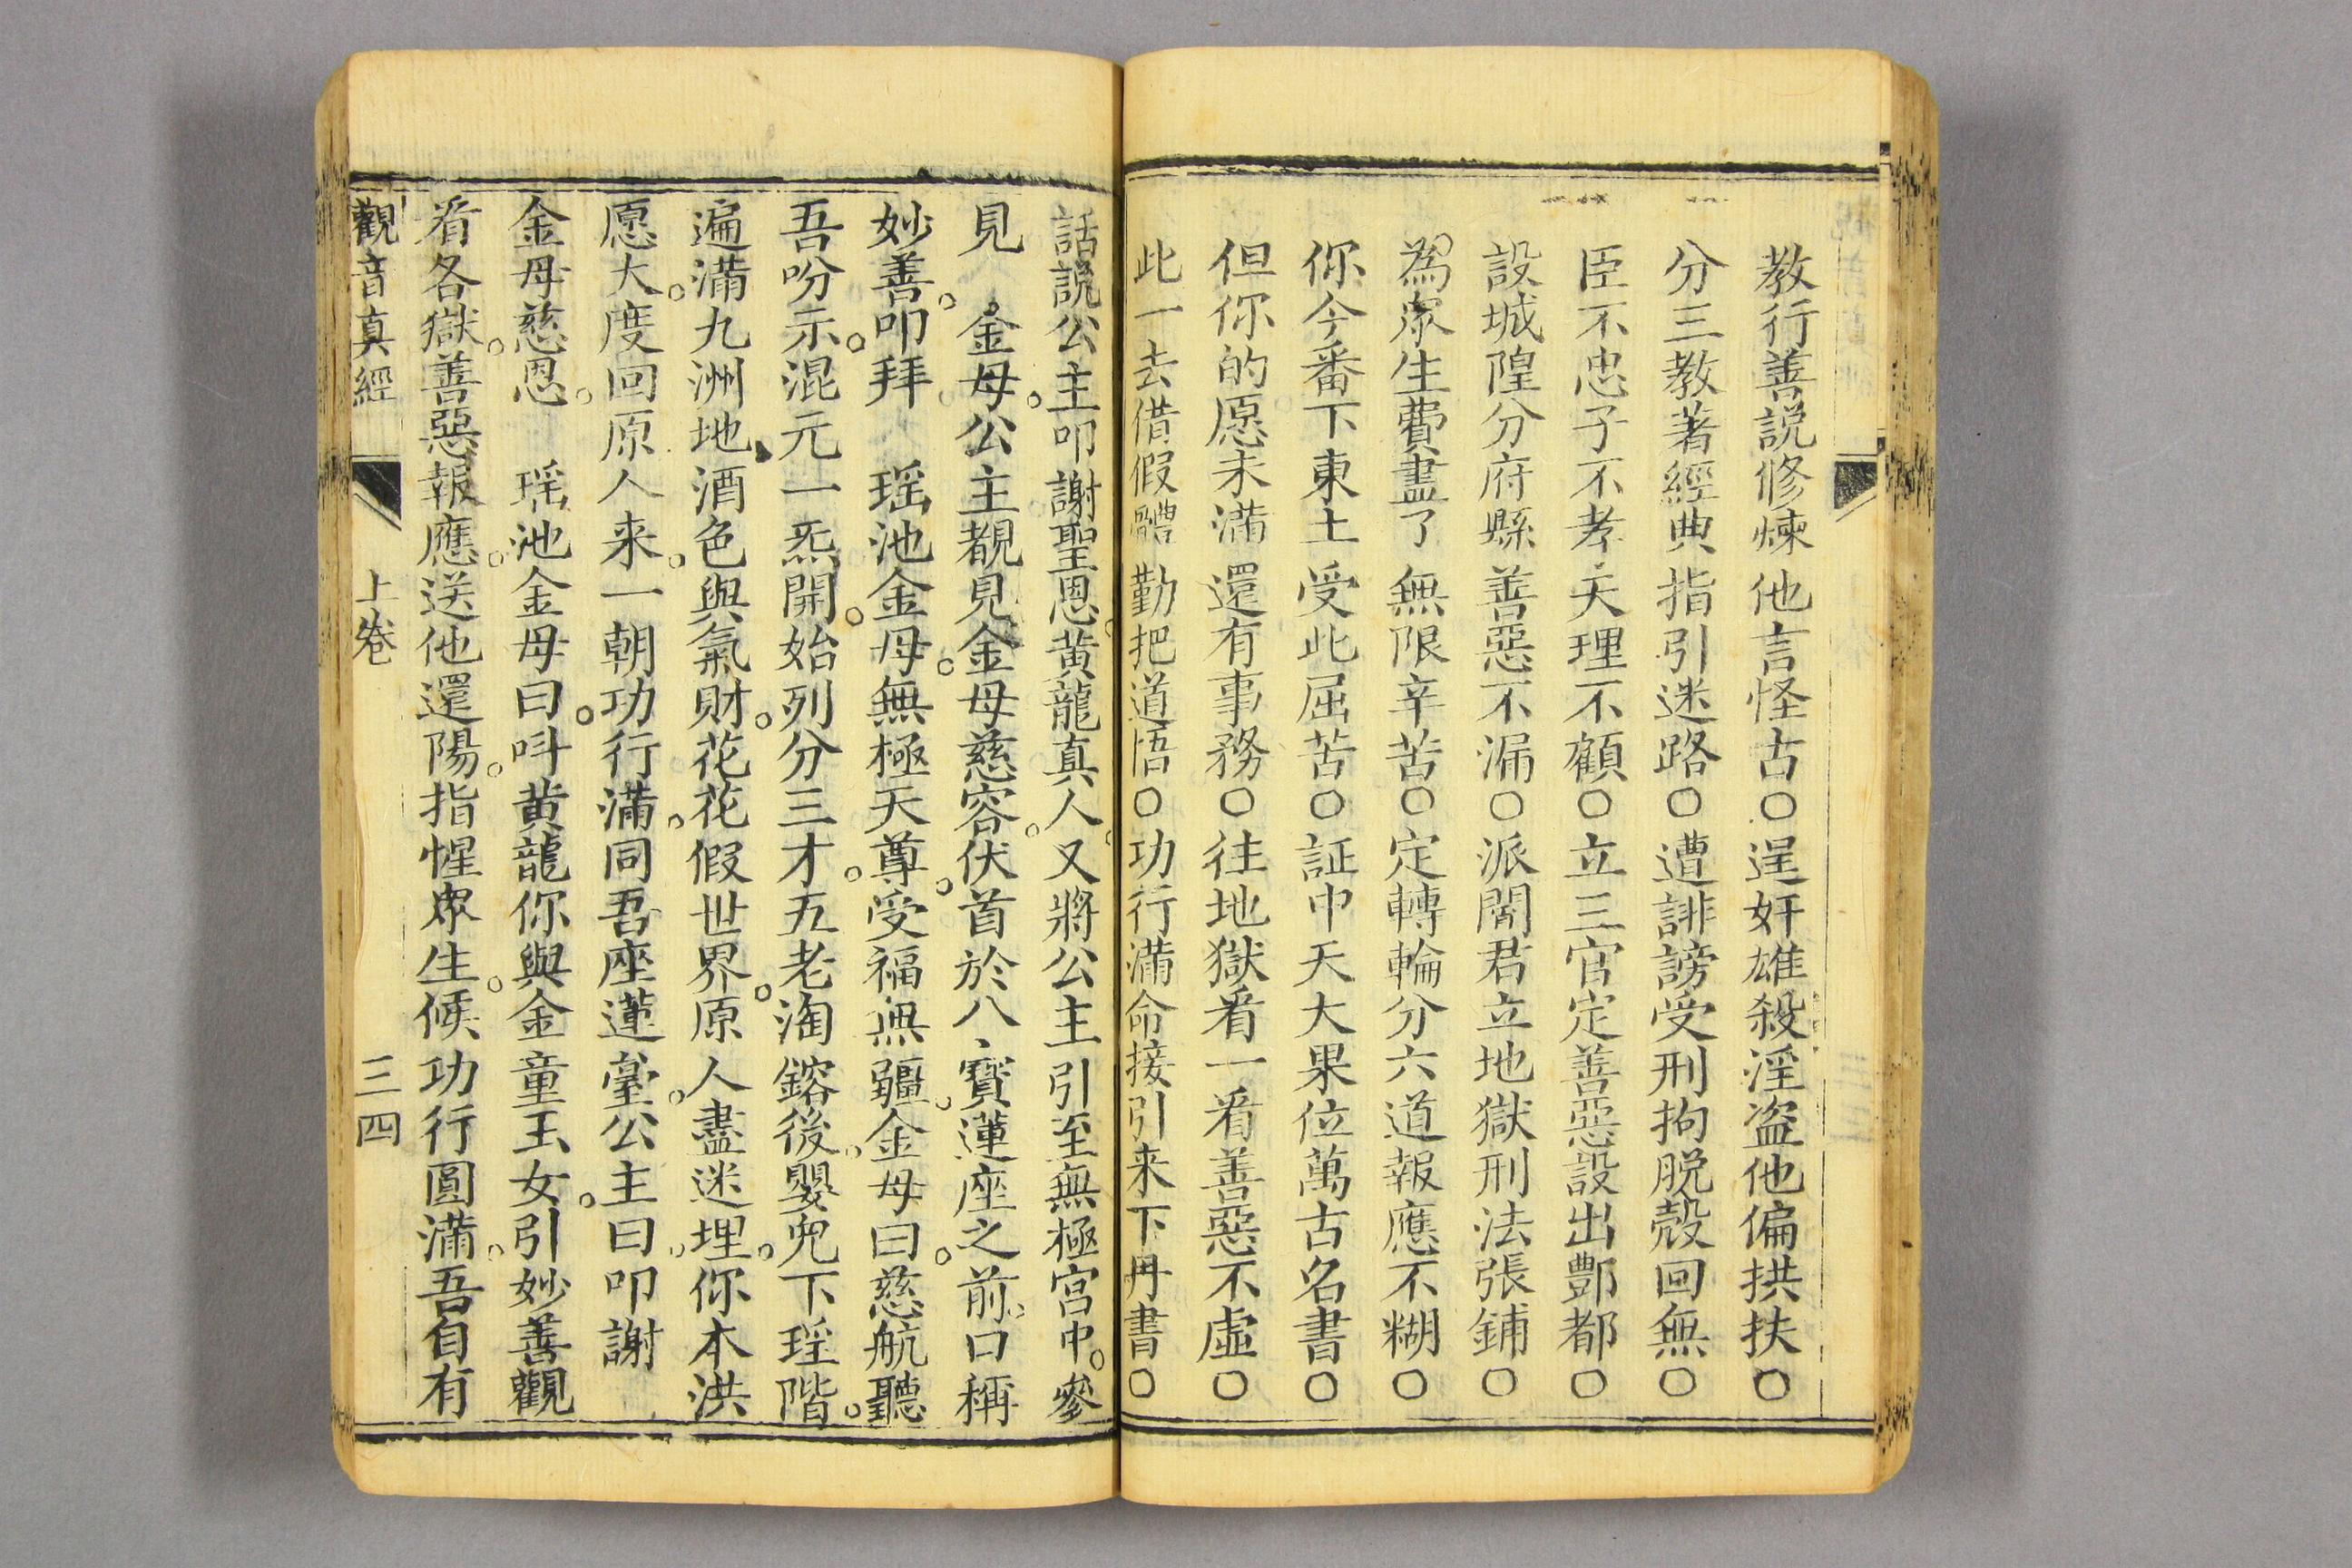 教行善説修煉他言怪古○逞奸雄殺淫盗他偏拱扶○
分三教著經典指引迷路○遭誹謗受刑拘脱殼回無○
臣不忠子不孝天理不顧○立三官定善惡設出酆都○
設城隍分府縣善惡不漏○派閻君立地獄刑法張鋪○
為衆生費盡了無限辛苦○定轉輪分六道報應不糊○
你今番下東土受此屈苦○証中天大果位萬古名書○
但你的愿未滿還有事務○往地獄看一看善惡不虛○
此一去借假體勤把道悟○功行滿命接引来下丹書○
話説公主叩謝聖恩。黄龍真人。又將公主引至無極宮中。參
見 金母。公主覩見金母慈容。伏首於八寳蓮座之前。口稱
妙善。叩拜 瑶池金母。無極天尊。受福無疆。金母曰。慈航聽
吾吩示。混元一炁開。始列分三才。五老淘鎔後。嬰兒下瑶階。
遍滿九洲地。酒色與氣財。花花假世界。原人盡迷埋。你本洪
愿大。度回原人来。一朝功行滿。同吾座蓮臺。公主曰。叩謝
金母慈恩。 瑶池金母曰。呌黄龍你與金童玉女。引妙善觀
看各獄。善惡報應。送他還陽。指惺衆生。候功行圓滿。吾自有
觀音真經 上卷 三四